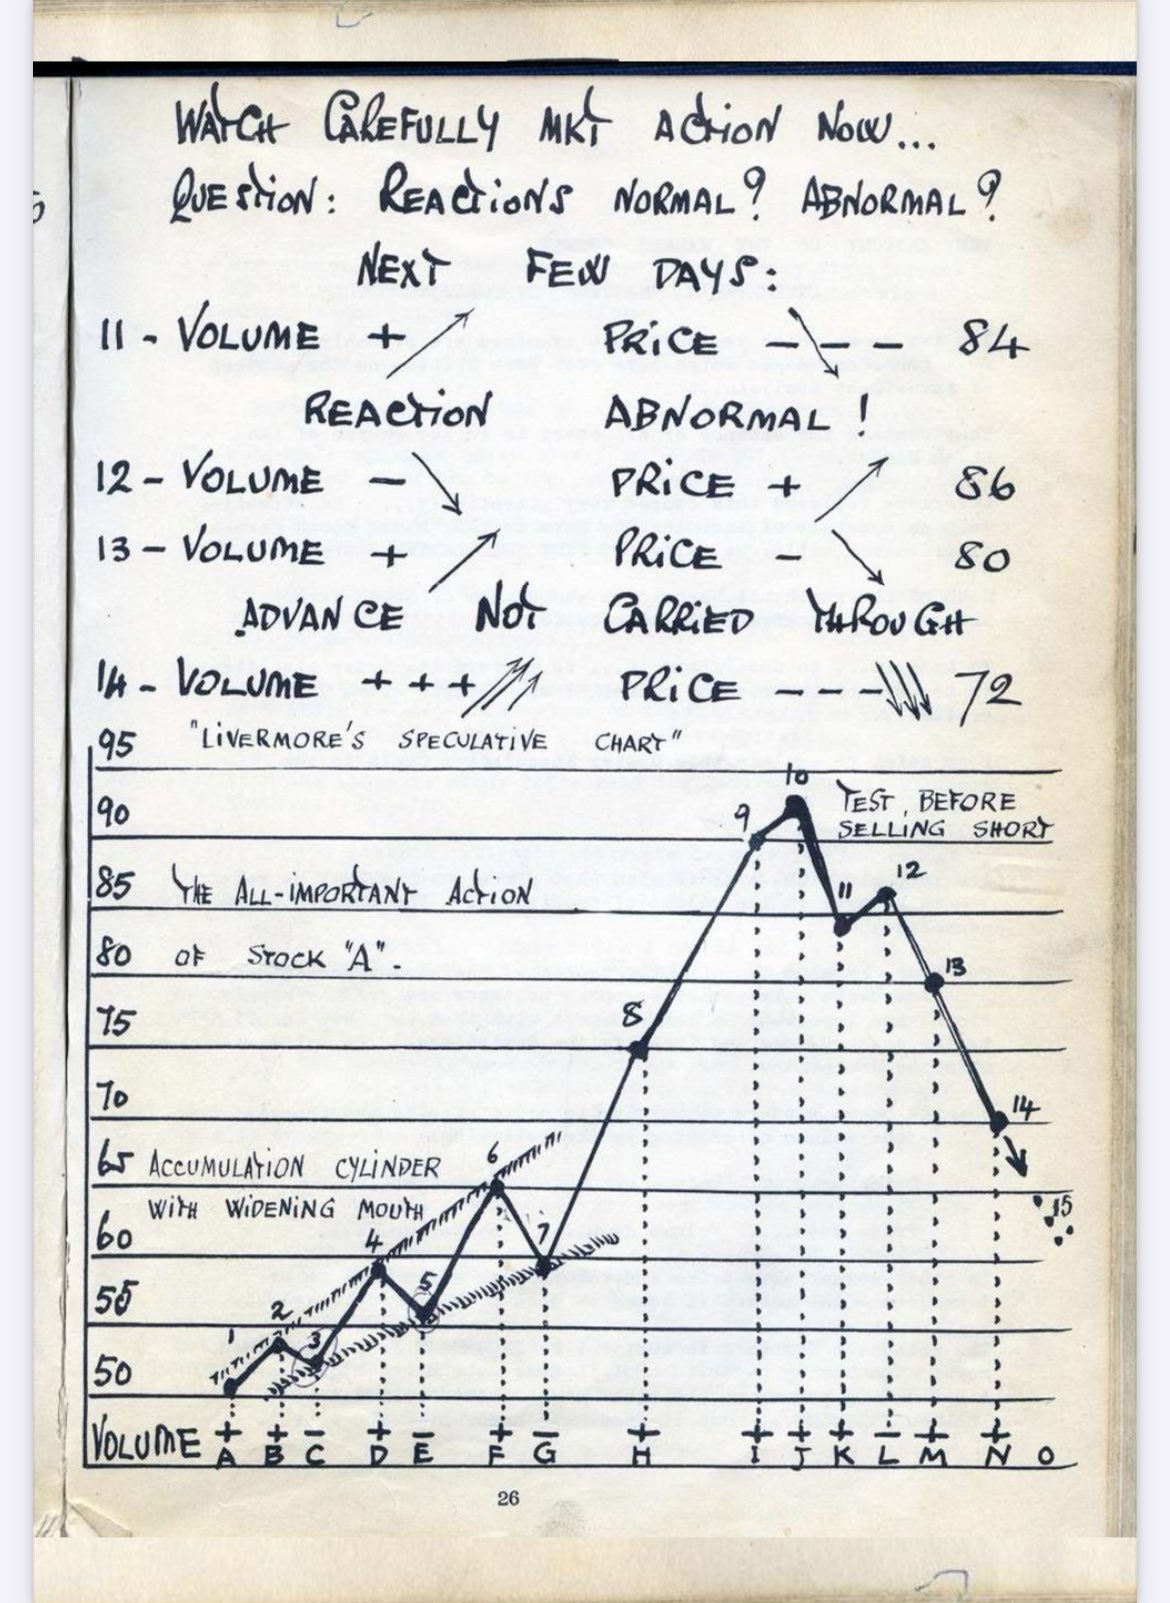 WATCH CAREFULLY MKT ACTION NOW...
QUESTION: REACTIONS NORMAL? ABNORMAL?
NEXT FEW DAYS:
11 - VOLUME + PRICE - - 84
REACTION ABNORMAL!
12 - VOLUME - PRICE + 86
13 - VOLUME + PRICE - 80
ADVANCE NOT CARRIED THROUGH
14 - VOLUME + + + PRICE - - - 72
95 "LIVERMORE'S SPECULATIVE CHART"
10
90 9 TEST BEFORE
SELLING SHORT
85 THE ALL-IMPORTANT ACTION 11 12
80 OF STOCK "A". 13
75 8
70 14
65 ACCUMULATION CYLINDER 6
WITH WIDENING MOUTH 15
60 4 7
55 5
1 2 3
50
VOLUME + + - + - + - + + + + - + +
A B C D E F G H I J K L M N O
26